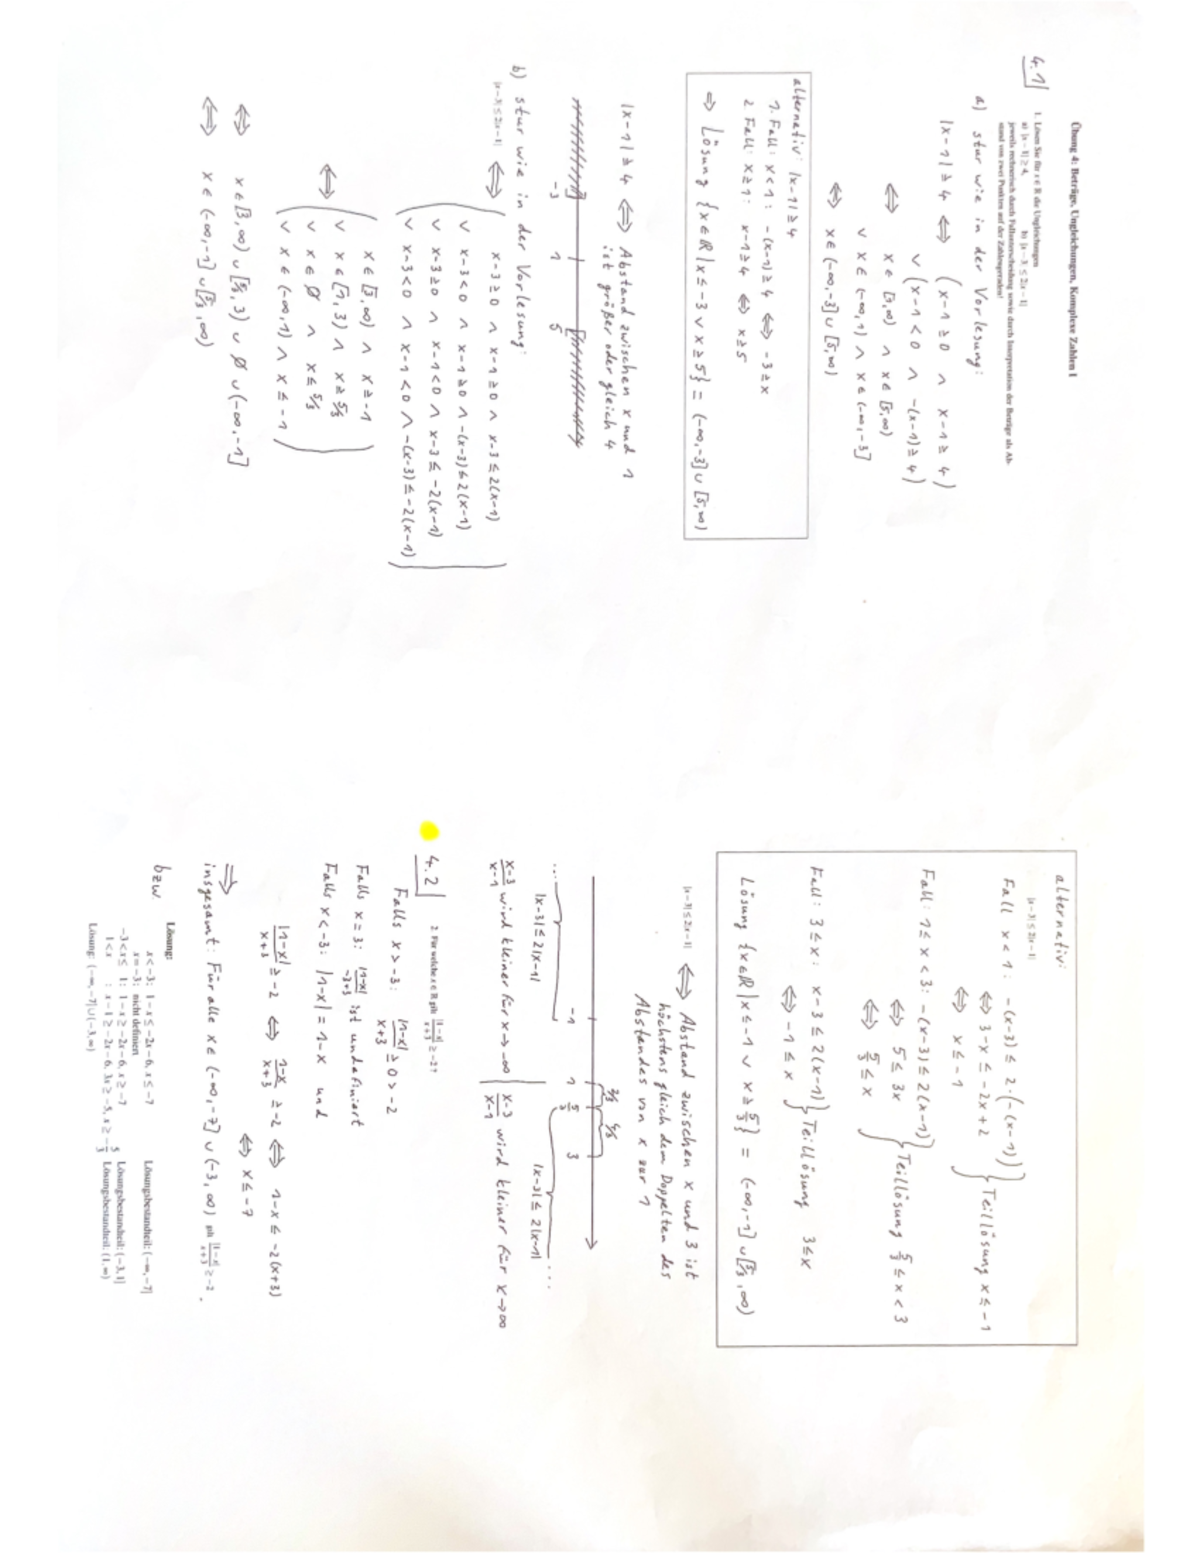 Übung 4: Beträge, Ungleichungen, Komplexe Zahlen I
4.1
1. Lösen Sie für x ∈ ℝ die Ungleichungen
a) |x − 1| ≥ 4, b) |x − 3| ≤ 2|x − 1|
jeweils rechnerisch durch Fallunterscheidung sowie durch Interpretation der Beträge als Ab-
stand von zwei Punkten auf der Zahlengeraden!
a) stur wie in der Vorlesung:
|x-1| ≥ 4 ⇔ (x-1 ≥ 0 ∧ x-1 ≥ 4)
∨ (x-1 < 0 ∧ -(x-1) ≥ 4)
⇔ x ∈ [1,∞) ∧ x ∈ [5,∞)
∨ x ∈ (-∞,1) ∧ x ∈ (-∞,-3]
⇔ x ∈ (-∞,-3] ∪ [5,∞)
alternativ: |x-1| ≥ 4
1. Fall: x < 1: -(x-1) ≥ 4 ⇔ -3 ≥ x
2. Fall: x ≥ 1: x-1 ≥ 4 ⇔ x ≥ 5
⇒ Lösung {x ∈ ℝ | x ≤ -3 ∨ x ≥ 5} = (-∞,-3] ∪ [5,∞)
|x-1| ≥ 4 ⇔ Abstand zwischen x und 1
ist größer oder gleich 4
-3 1 5
b) stur wie in der Vorlesung:
|x − 3| ≤ 2|x − 1| ⇔ x-3 ≥ 0 ∧ x-1 ≥ 0 ∧ x-3 ≤ 2(x-1)
∨ x-3 < 0 ∧ x-1 ≥ 0 ∧ -(x-3) ≤ 2(x-1)
∨ x-3 ≥ 0 ∧ x-1 < 0 ∧ x-3 ≤ -2(x-1)
∨ x-3 < 0 ∧ x-1 < 0 ∧ -(x-3) ≤ -2(x-1)
x ∈ [3,∞) ∧ x ≥ -1
⇔ ∨ x ∈ [1,3) ∧ x ≥ 5/3
∨ x ∈ ∅ ∧ x ≤ 5/3
∨ x ∈ (-∞,1) ∧ x ≤ -1
⇔ x ∈ [3,∞) ∪ [5/3,3) ∪ ∅ ∪ (-∞,-1]
⇔ x ∈ (-∞,-1] ∪ [5/3,∞)
alternativ:
|x − 3| ≤ 2|x − 1|
Fall x < 1: -(x-3) ≤ 2·(-(x-1))
⇔ 3-x ≤ -2x+2 } Teillösung x ≤ -1
⇔ x ≤ -1
Fall: 1 ≤ x < 3: -(x-3) ≤ 2(x-1)
⇔ 5 ≤ 3x } Teillösung 5/3 ≤ x < 3
⇔ 5/3 ≤ x
Fall: 3 ≤ x: x-3 ≤ 2(x-1) } Teillösung 3 ≤ x
⇔ -1 ≤ x
Lösung {x ∈ ℝ | x ≤ -1 ∨ x ≥ 5/3} = (-∞,-1] ∪ [5/3,∞)
|x − 3| ≤ 2|x − 1| ⇔ Abstand zwischen x und 3 ist
höchstens gleich dem Doppelten des
Abstandes von x zur 1
2/3 4/3
-1 1 5/3 3
|x-3| ≤ 2|x-1| |x-3| ≤ 2|x-1|
... ...
x-3/x-1 wird kleiner für x → -∞ | x-3/x-1 wird kleiner für x → ∞
4.2
2. Für welche x ∈ ℝ gilt |1−x|/x+3 ≥ −2?
Falls x > -3: |1-x|/x+3 ≥ 0 > -2
Falls x = 3: |1-x|/-3+3 ist undefiniert
Falls x < -3: |1-x| = 1-x und
|1-x|/x+3 ≥ -2 ⇔ 1-x/x+3 ≥ -2 ⇔ 1-x ≤ -2(x+3)
⇔ x ≤ -7
⇒
insgesamt: Für alle x ∈ (-∞,-7] ∪ (-3,∞) gilt |1−x|/x+3 ≥ −2.
bzw.
Lösung:
x < −3: 1 − x ≤ −2x − 6, x ≤ −7 Lösungsbestandteil: (−∞, −7]
x = −3: nicht definiert
−3 < x ≤ 1: 1 − x ≥ −2x − 6, x ≥ −7 Lösungsbestandteil: (−3, 1]
1 < x : x − 1 ≥ −2x − 6, 3x ≥ −5, x ≥ −5/3 Lösungsbestandteil: (1, ∞)
Lösung: (−∞, −7] ∪ (−3, ∞)